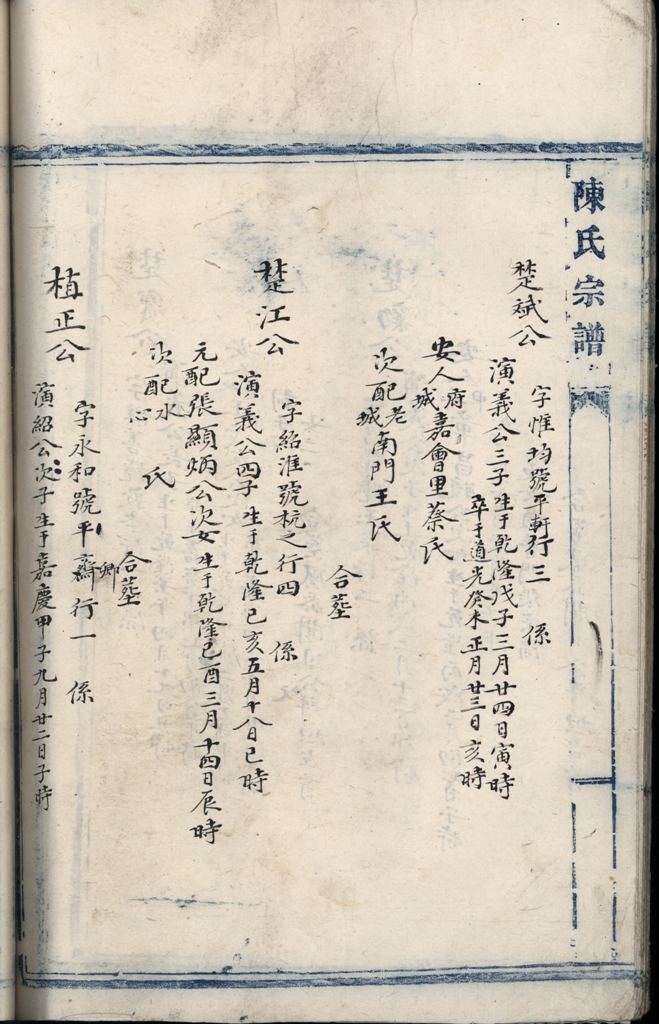 陳氏宗譜
楚斌公
字惟均號平軒行三 係
演義公三子生于乾隆戊子三月廿四日寅時
卒于道光癸未正月廿三日亥時
安人府城嘉會里蔡氏
次配老城南門王氏
合塟
楚江公
字紹淮號杭之行四 係
演義公四子生于乾隆己亥五月十八日巳時
元配張顯炳公次女生于乾隆己酉三月十四日辰時
次配水心 氏
合塟
植正公
字永和號平齋卿行一 係
演紹公次子生于嘉慶甲子九月廿二日子時